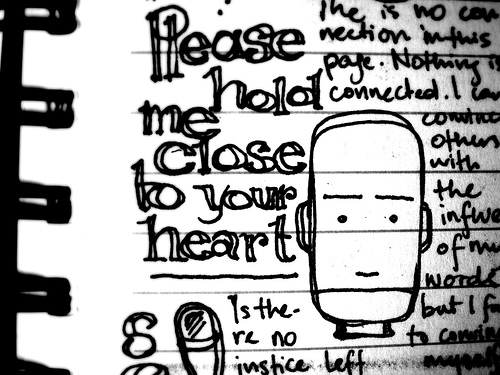 Please
hold
me
close
to your
heart
The is no con
nection in this
page. Nothing is
connected. I can
convince
others
with
the
influe
of my
words
but I f
to convin
myself
Is the-
re no
injustice left
S